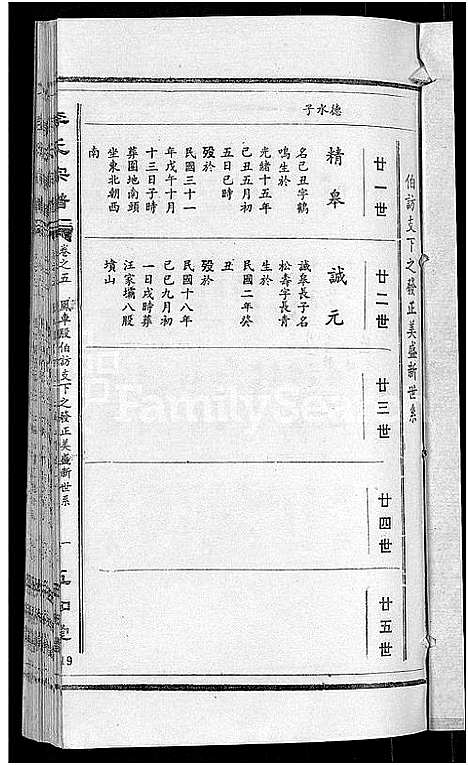 伯訪支下之發正美盛新世系
廿一世
廿二世
廿三世
廿四世
廿五世
德水子
精皋
名己丑字鶴
鳴生於
光緒十五年
己丑五月初
五日巳時
歿於
民國三十一
年戊午十月
十三日子時
葬園地南頭
坐東北朝西
南
誠元
誠皋長子名
松壽字長青
生於
民國二年癸
丑
歿於
民國十八年
己巳九月初
一日戌時葬
汪家壩八股
墳山
李氏宗譜
卷之五
風車段伯訪支下之發正美盛新世系
一
19